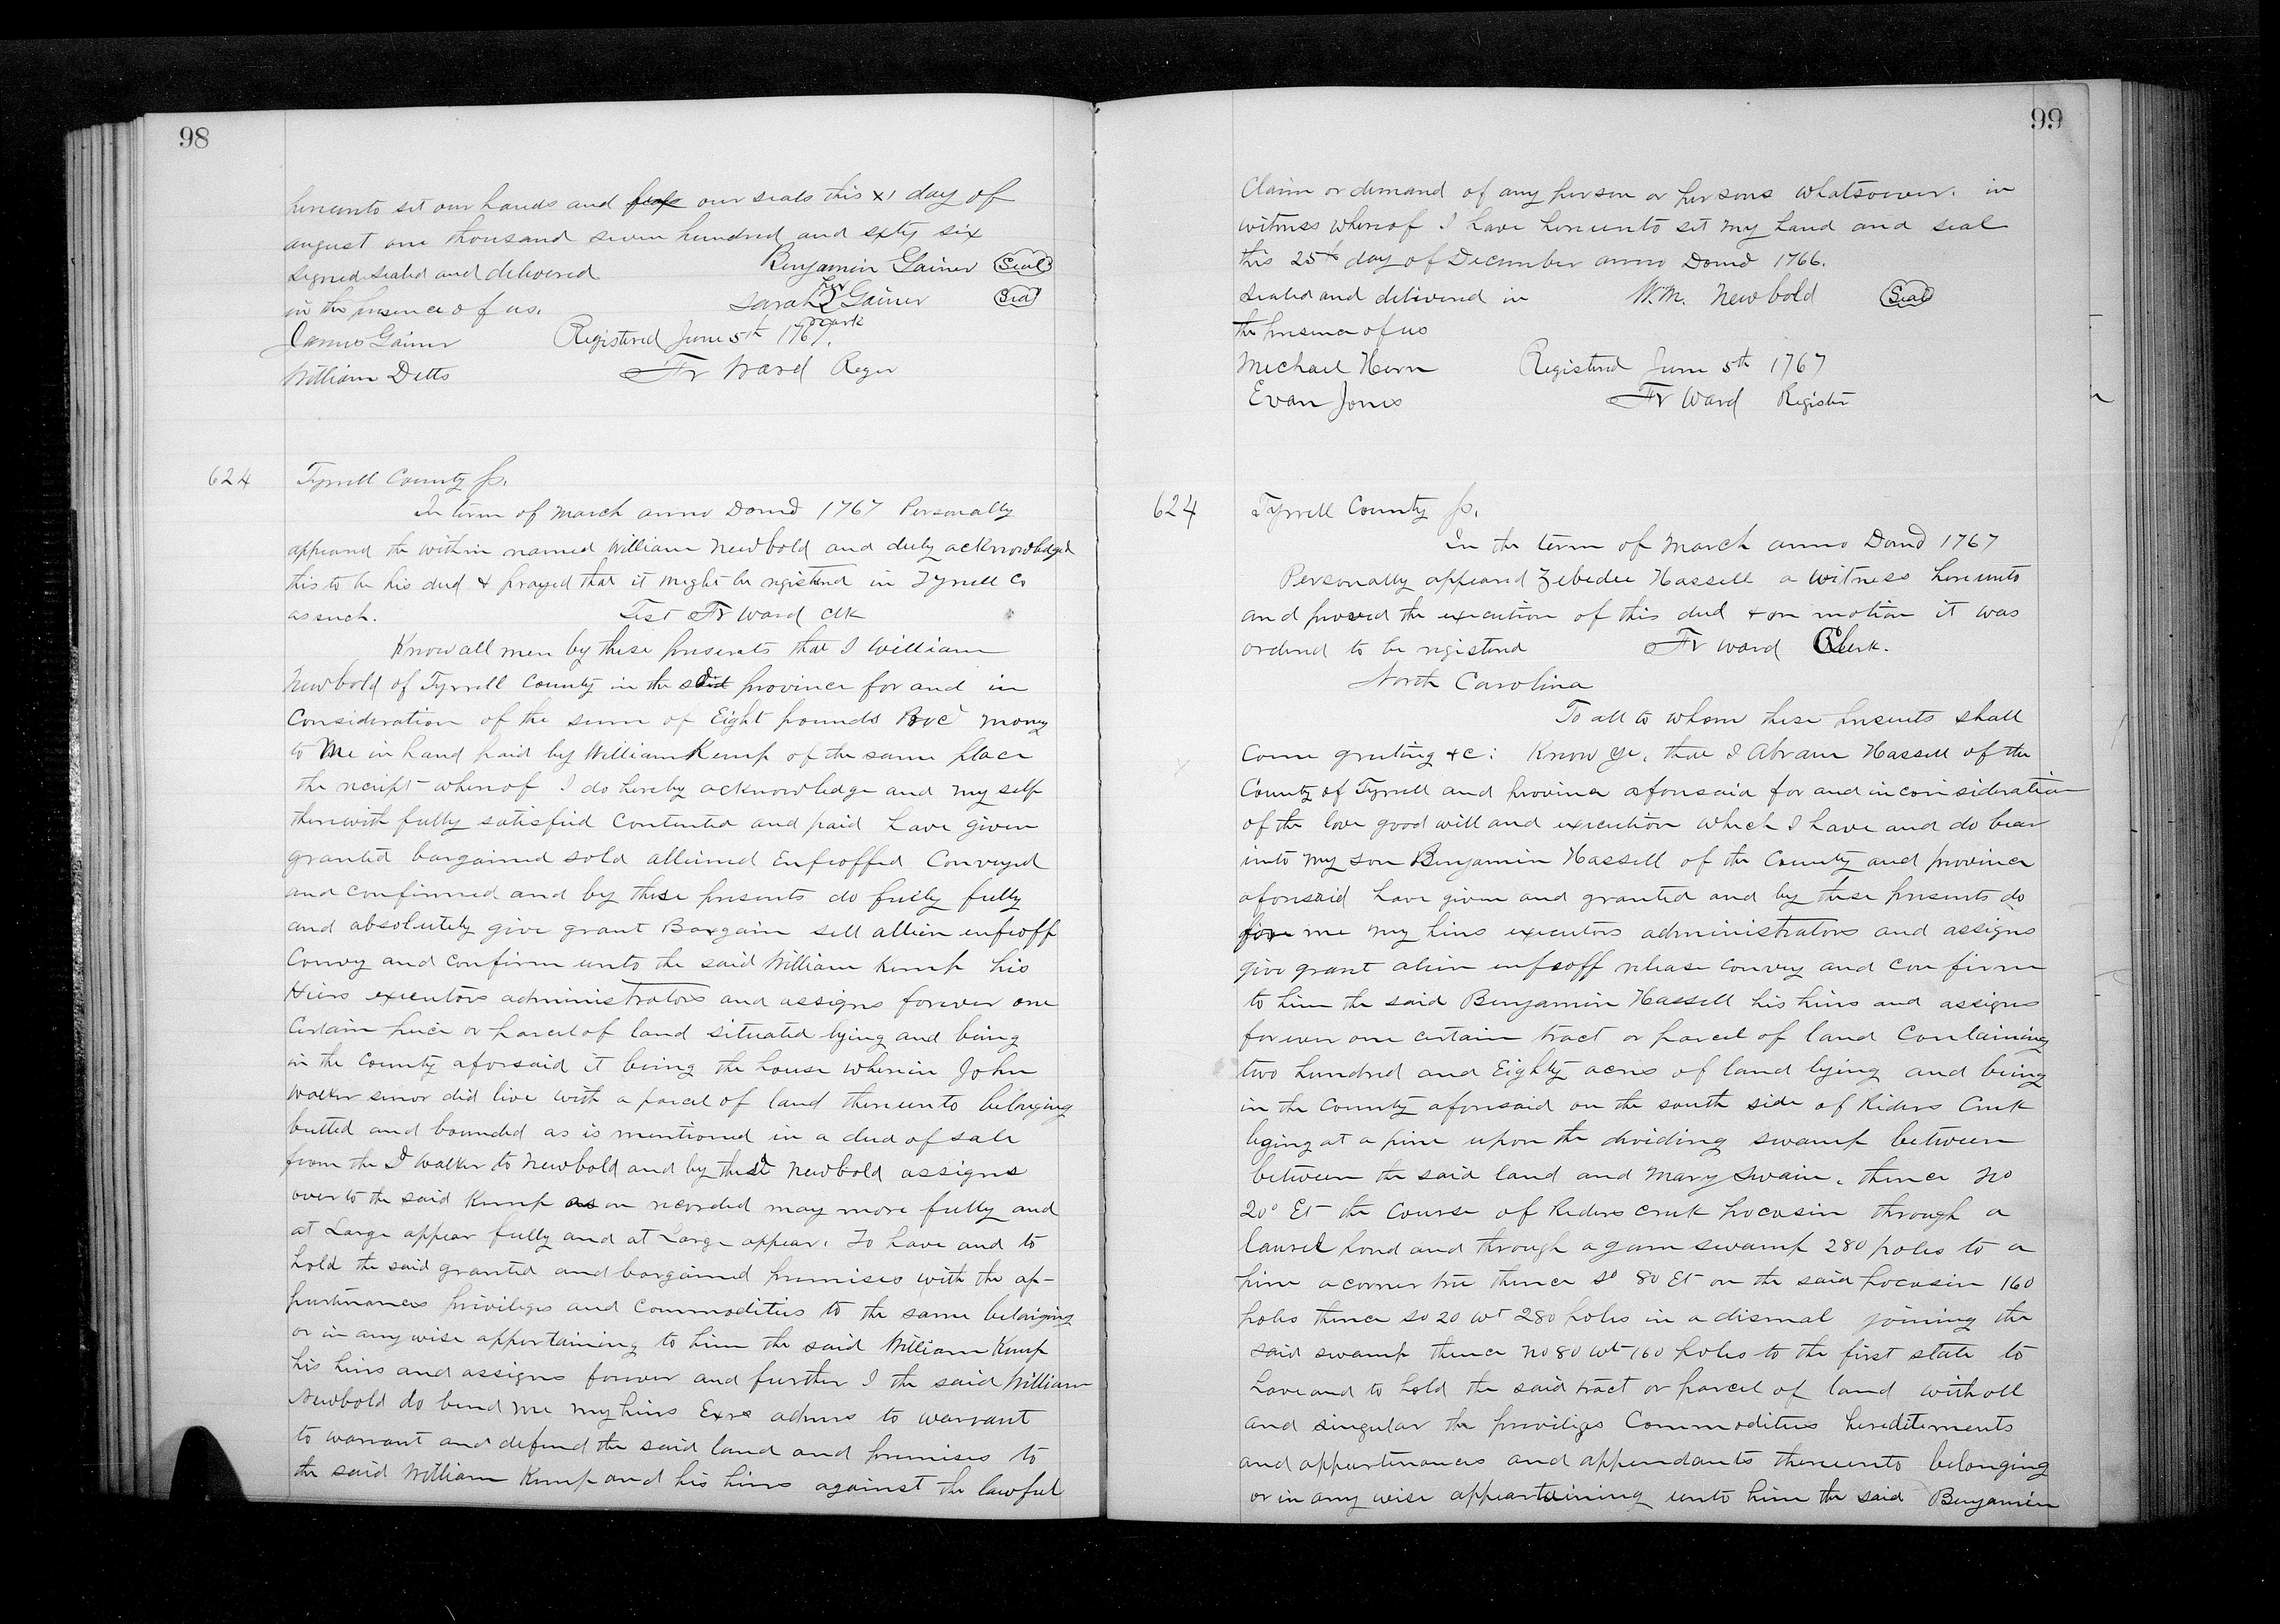 98
hereunto set our hands and our seals this x1 day of
august one thousand seven hundred and sxty six
signed sealed and delivered Benjamin Gainer Seal
in the presence of us. Sarah her Gainer Seal
mark
James Gainer Registered June 5th 1767.
William Detts Fr Ward Reger
624 Tyrrell County Ss.
In term of March anno Domd 1767 Personally
appeard the within named William Newbold and duly acknowledged
this to be his deed & prayed that it might be registered in Tyrrell Co
as such. Test Fr Ward Clk
Know all men by these presents that I William
Newbold of Tyrrell County in the sd province for and in
Consideration of the sum of Eight pounds Proc money
to me in hand paid by William Kemp of the same place
the receipt whereof I do hereby acknowledge and my self
therewith fully satisfied Contented and paid have given
granted bargained sold alliened Enfeoffed Conveyed
and confirmed and by these presents do freely fully
and absolutely give grant Bargain sell allien enfeoff
Convey and confirm unto the said William Kemp his
Heirs executors administrators and assigns forever one
Certain peice or parcel of land situated lying and being
in the County aforsaid it being the house wherein John
Walker senor did live with a parcel of land thereunto belonging
butted and bounded as is mentioned in a deed of sale
from the sd Walker to Newbold and by the sd Newbold assigns
over to the said Kemp as on recorded may more fully and
at Large appear fully and at Large appear. To have and to
hold the said granted and bargained premises with the ap-
purtinances priviliges and Commodities to the same belonging
or in any wise appertaining to him the said William Kemp
his heirs and assigns forever and further I the said William
Newbold do bend me my heirs Exrs admrs to warrant
to warrant and defend the said land and premises to
the said William Kemp and his heirs against the lawful
99
Claim or demand of any person or persons whatsoever. in
witness whereof I have hereunto set my hand and seal
this 25th day of December anno Domd 1766.
Sealed and delivered in W.M. Newbold Seal
the presence of us
Michael Hern Registered June 5th 1767
Evan Jones Fr Ward Register
624 Tyrrell County Ss.
In the term of March anno Domd 1767
Personally appeard Zebedee Hassell a Witness hereunto
and proved the execution of this deed & on motion it was
ordered to be registered Fr Ward Clerk.
North Carolina
To all to whom these presents shall
Come greeting &c: Know ye, that I Abram Hassell of the
County of Tyrrell and province aforesaid for and in consideration
of the love good will and execution which I have and do bear
into my son Benjamin Hassell of the County and province
aforesaid have given and granted and by these presents do
fore me my heirs executors administrators and assigns
give grant alien enfeoff release convey and confirm
to him the said Benjamin Hassell his heirs and assigns
forever one certain tract or parcel of land Containing
two hundred and Eighty acres of land lying and being
in the County aforesaid on the south side of Riders Creek
beging at a pine upon the dividing swamp between
between the said land and Mary Swain. thence No
20° Et the Course of Riders Creek pocosin through a
laurel pond and through a gum swamp 280 poles to a
pine a corner tree thence So 80 Et on the said pocosin 160
poles thence So 20 Wt 280 poles in a dismal joining the
said swamp thence No 80 Wt 160 poles to the first state to
have and to hold the said tract or parcel of land with all
and singular the priviliges Commodities hereditements
and appurtinances and appendants thereunto belonging
or in any wise appeartaining unto him the said Benjamin